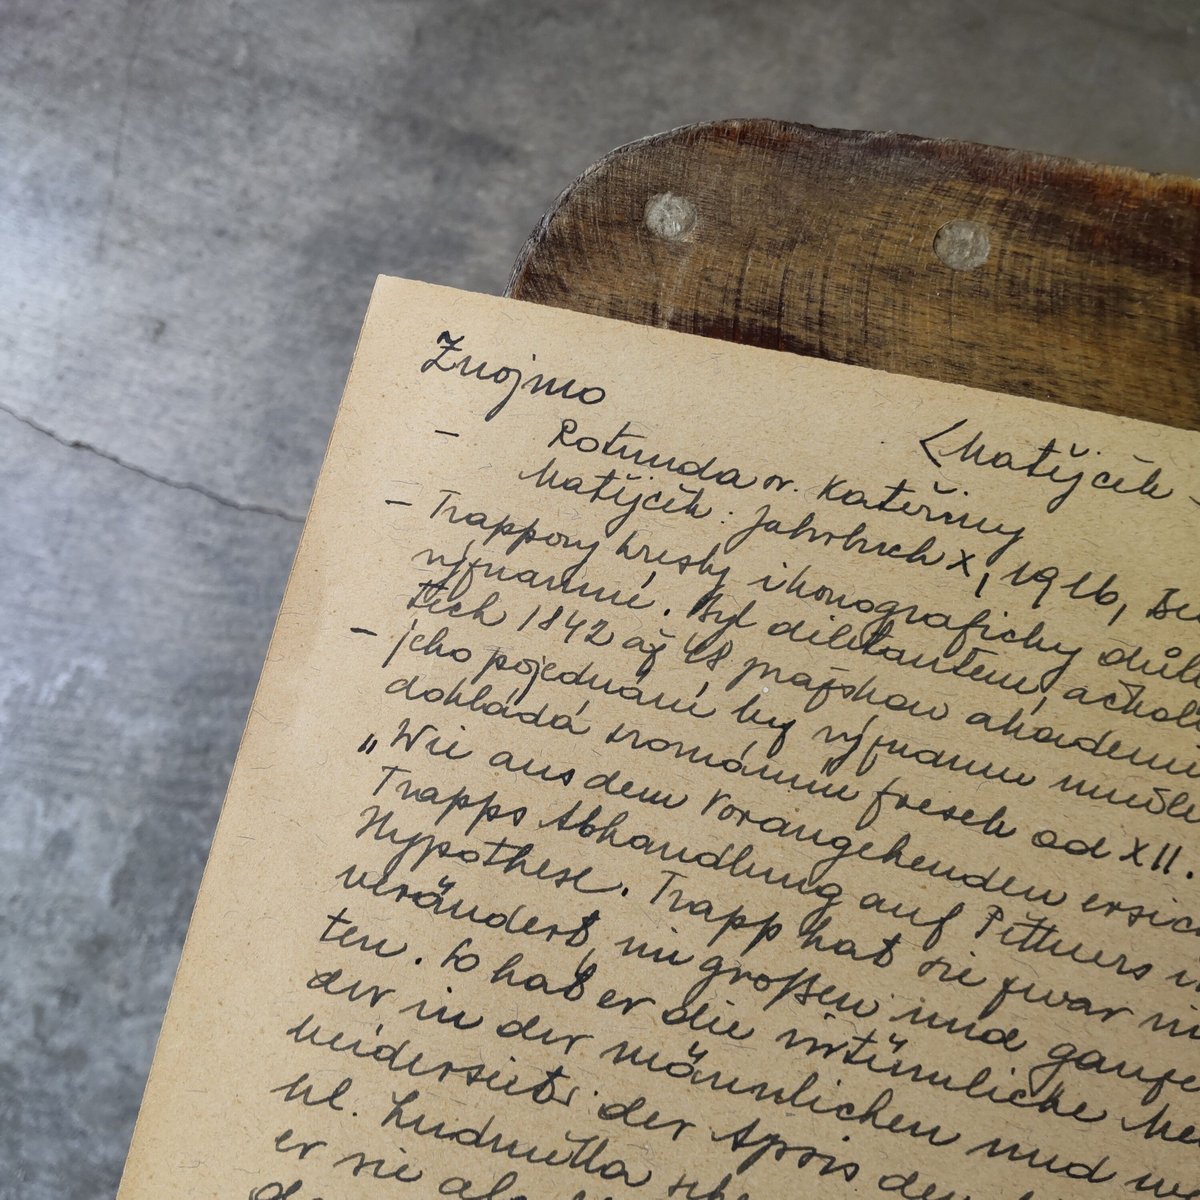 Znojmo
<Matějček -
- Rotunda sv. Kateřiny
Matějček: Jahrbuch X, 1916,
- Trappovy kresby ikonograficky důl
významné. Byl diletantem, ačkoli
těch 1842 až 48 pražskou akademi
- jeho pojednání by význam
dokládá románských fresek od XII.
„Wie aus dem Vorangehenden ersic
Trapps Abhandlung auf Pittners
Hypothese. Trapp hat sie zwar
verändert, im großen und ganze
ten. So hat er die irrtümliche
der in der männlichen und
beiderseits der Apsis den
hl. Ludmilla
er sie